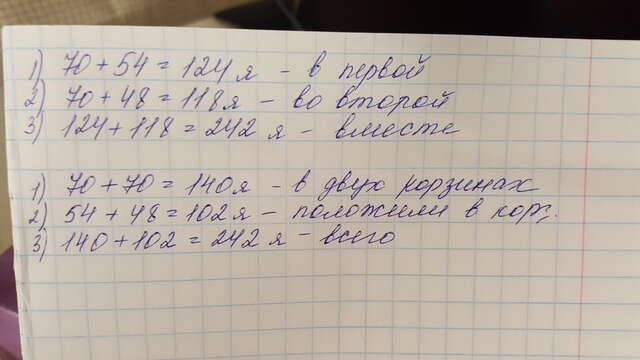 1) 70 + 54 = 124 я - в первой
2) 70 + 48 = 118 я - во второй
3) 124 + 118 = 242 я - вместе
1) 70 + 70 = 140 я - в двух корзинах
2) 54 + 48 = 102 я - положили в корз.
3) 140 + 102 = 242 я - всего